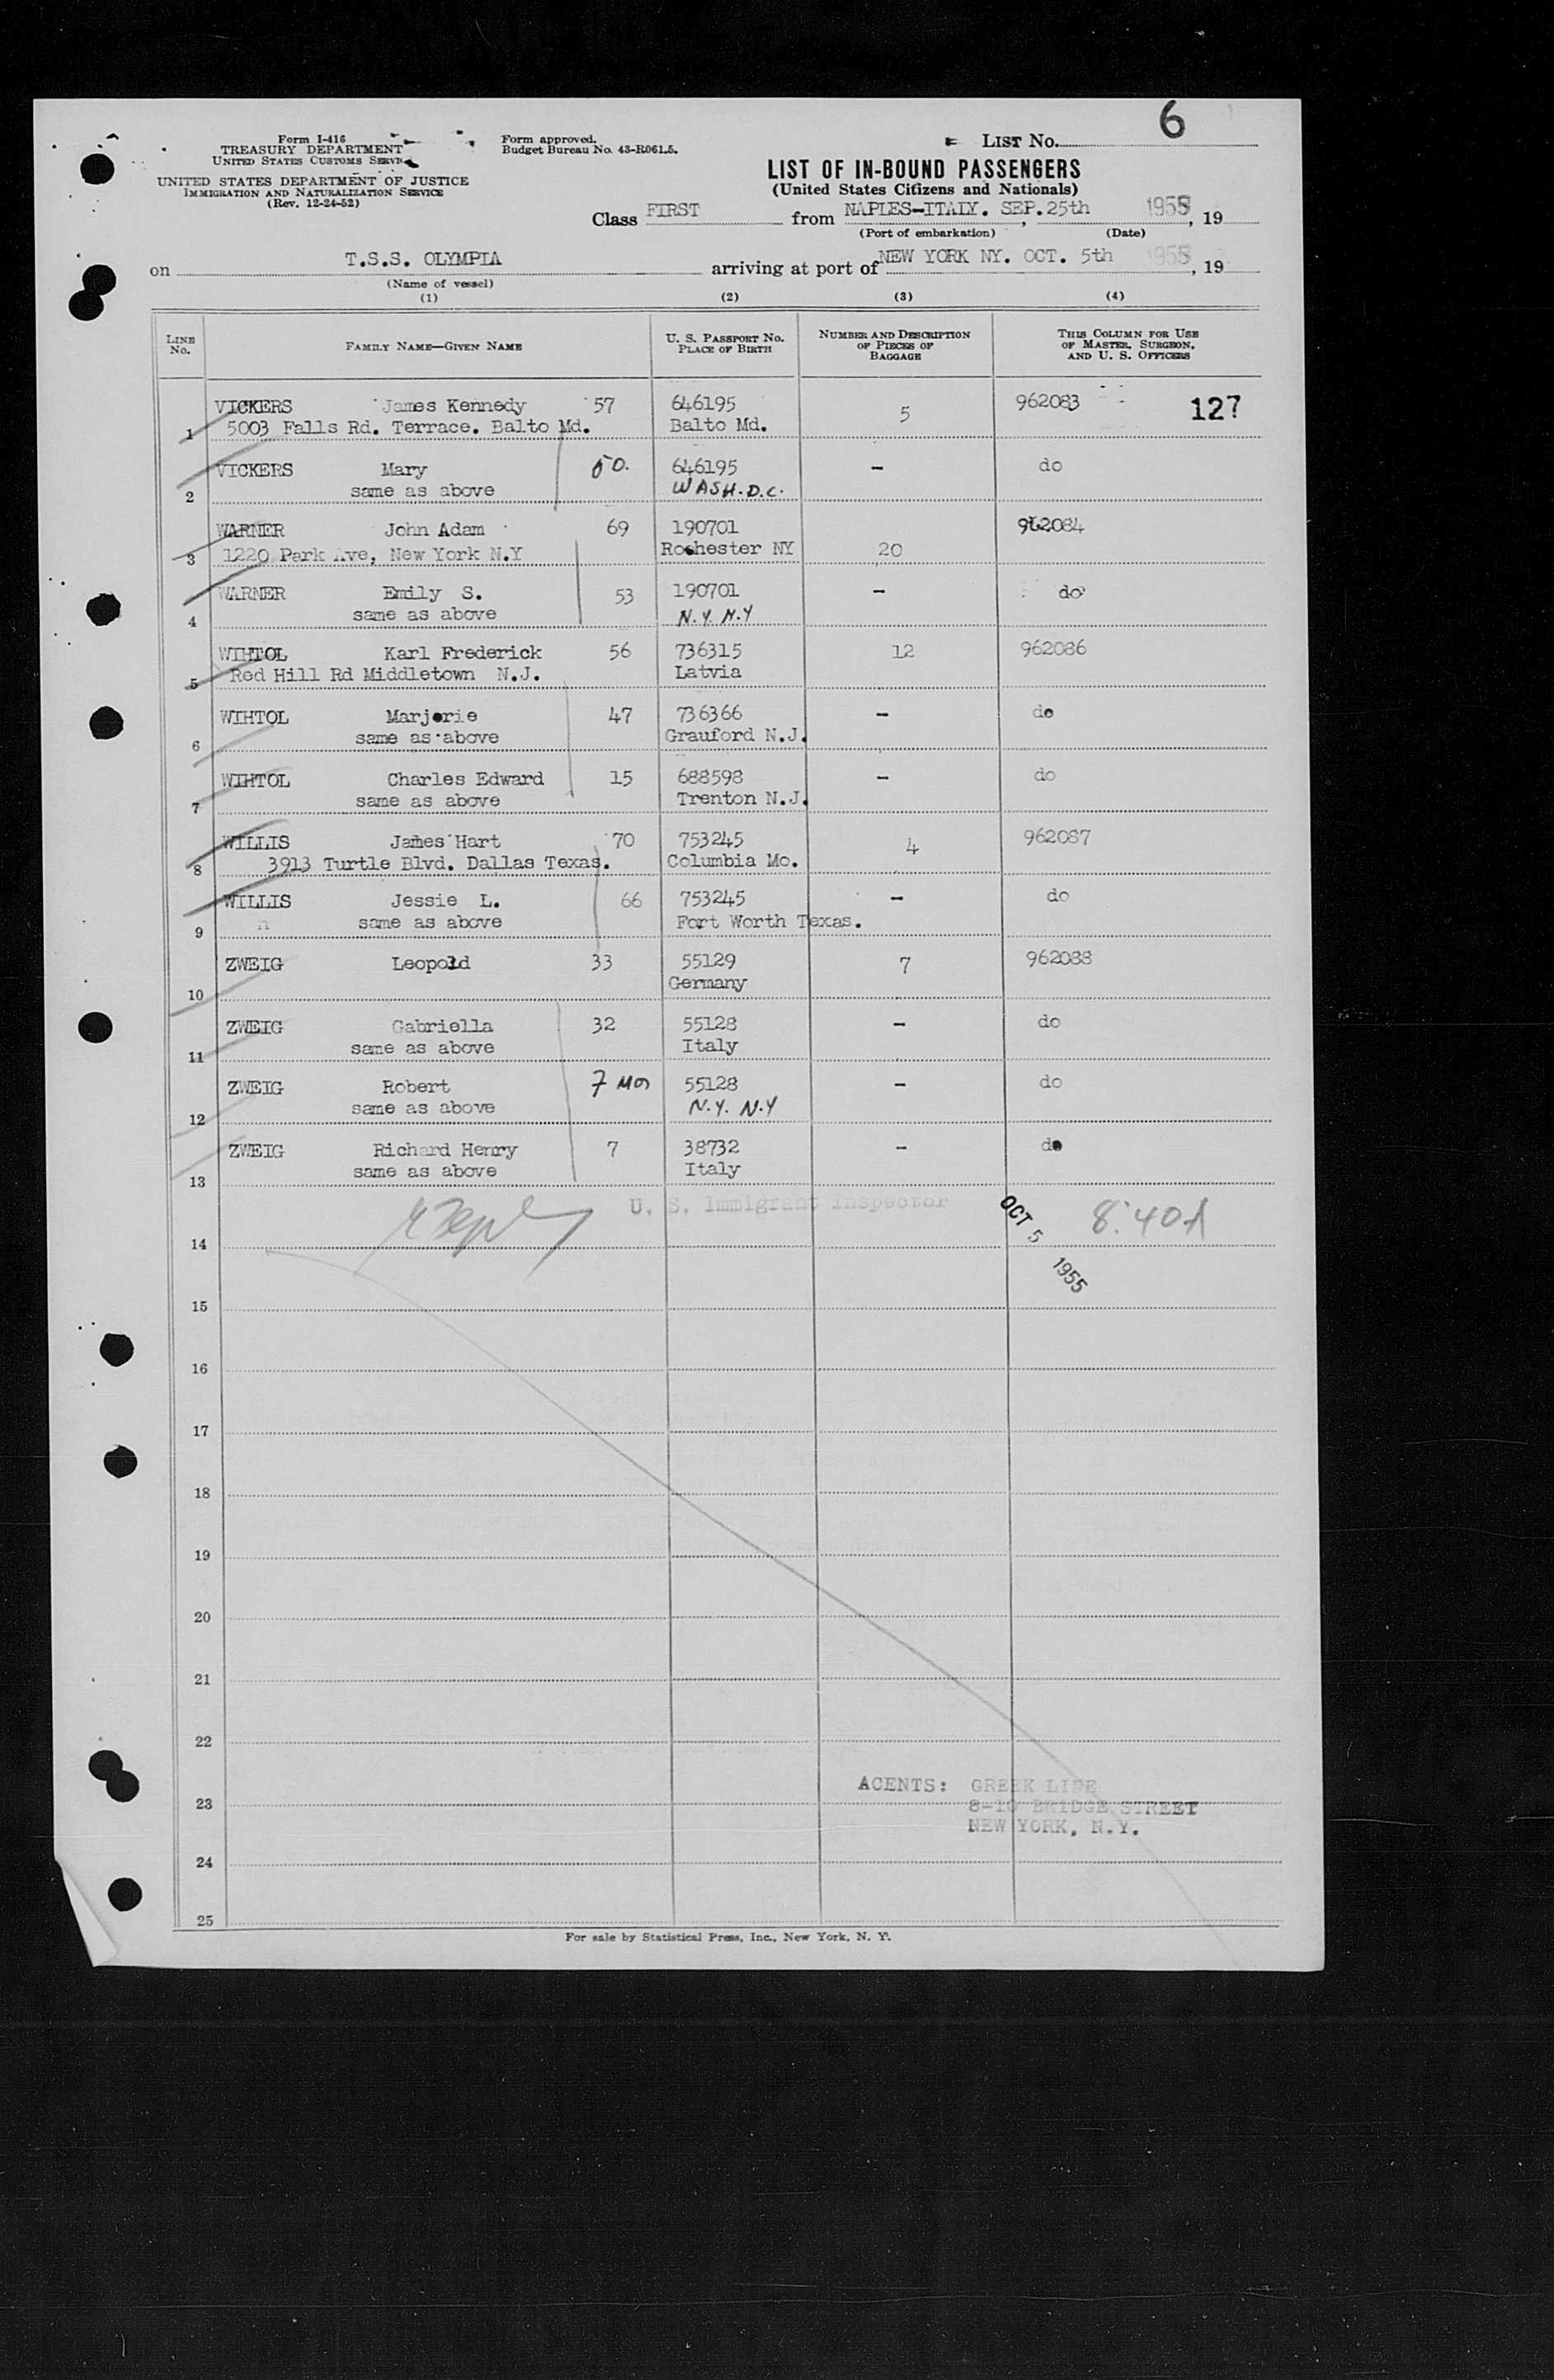 6
Form I-416
TREASURY DEPARTMENT
UNITED STATES CUSTOMS SERVICE
UNITED STATES DEPARTMENT OF JUSTICE
IMMIGRATION AND NATURALIZATION SERVICE
(Rev. 12-24-52)
Form approved.
Budget Bureau No. 43-R061.5.
LIST No.
LIST OF IN-BOUND PASSENGERS
(United States Citizens and Nationals)
Class FIRST from NAPLES-ITALY. SEP.25th 1955, 19
(Port of embarkation) (Date)
on T.S.S. OLYMPIA arriving at port of NEW YORK NY. OCT. 5th 1955, 19
(Name of vessel)
(1) (2) (3) (4)
LINE No. FAMILY NAME—GIVEN NAME U. S. PASSPORT No. PLACE OF BIRTH NUMBER AND DESCRIPTION OF PIECES OF BAGGAGE THIS COLUMN FOR USE OF MASTER, SURGEON, AND U. S. OFFICERS
VICKERS James Kennedy 57 646195 5 962083 127
1 5003 Falls Rd. Terrace. Balto Md. Balto Md.
VICKERS Mary 50. 646195 - do
2 same as above WASH.D.C.
WARNER John Adam 69 190701 962084
3 1220 Park Ave, New York N.Y Rochester NY 20
WARNER Emily S. 53 190701 - do
4 same as above N.Y. N.Y
WIHTOL Karl Frederick 56 736315 12 962086
5 Red Hill Rd Middletown N.J. Latvia
WIHTOL Marjorie 47 736366 - do
6 same as above Grauford N.J.
WIHTOL Charles Edward 15 688598 - do
7 same as above Trenton N.J.
WILLIS James Hart 70 753245 4 962087
8 3913 Turtle Blvd. Dallas Texas. Columbia Mo.
WILLIS Jessie L. 66 753245 - do
9 same as above Fort Worth Texas.
ZWEIG Leopold 33 55129 7 962088
10 Germany
ZWEIG Gabriella 32 55128 - do
11 same as above Italy
ZWEIG Robert 7 Mos 55128 - do
12 same as above N.Y. N.Y
ZWEIG Richard Henry 7 38732 - do
13 same as above Italy
U. S. Immigrant Inspector OCT 5 1955 8:40A
14
15
16
17
18
19
20
21
22
ACENTS: GREEK LINE
23 8-10 BRIDGE STREET
NEW YORK, N.Y.
24
25
For sale by Statistical Press, Inc., New York, N. Y.